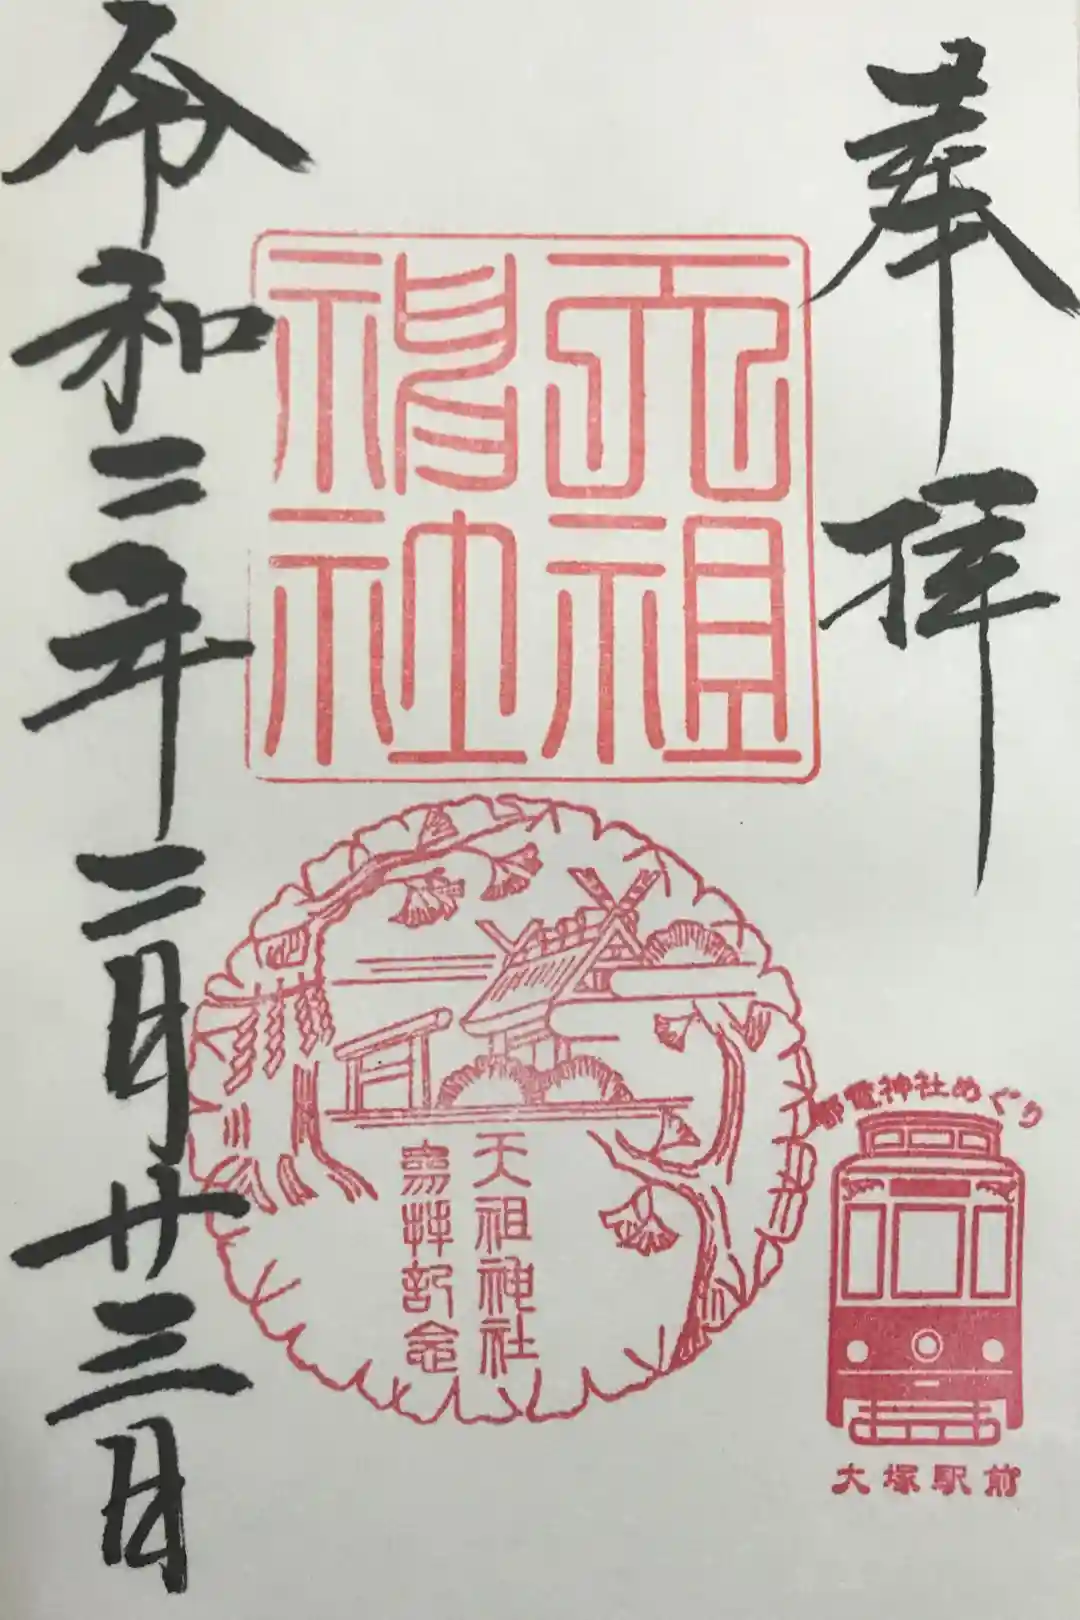 奉拝
天祖
神社
令和二年二月廿三日
天祖神社
参拝記念
都電神社めぐり
大塚駅前